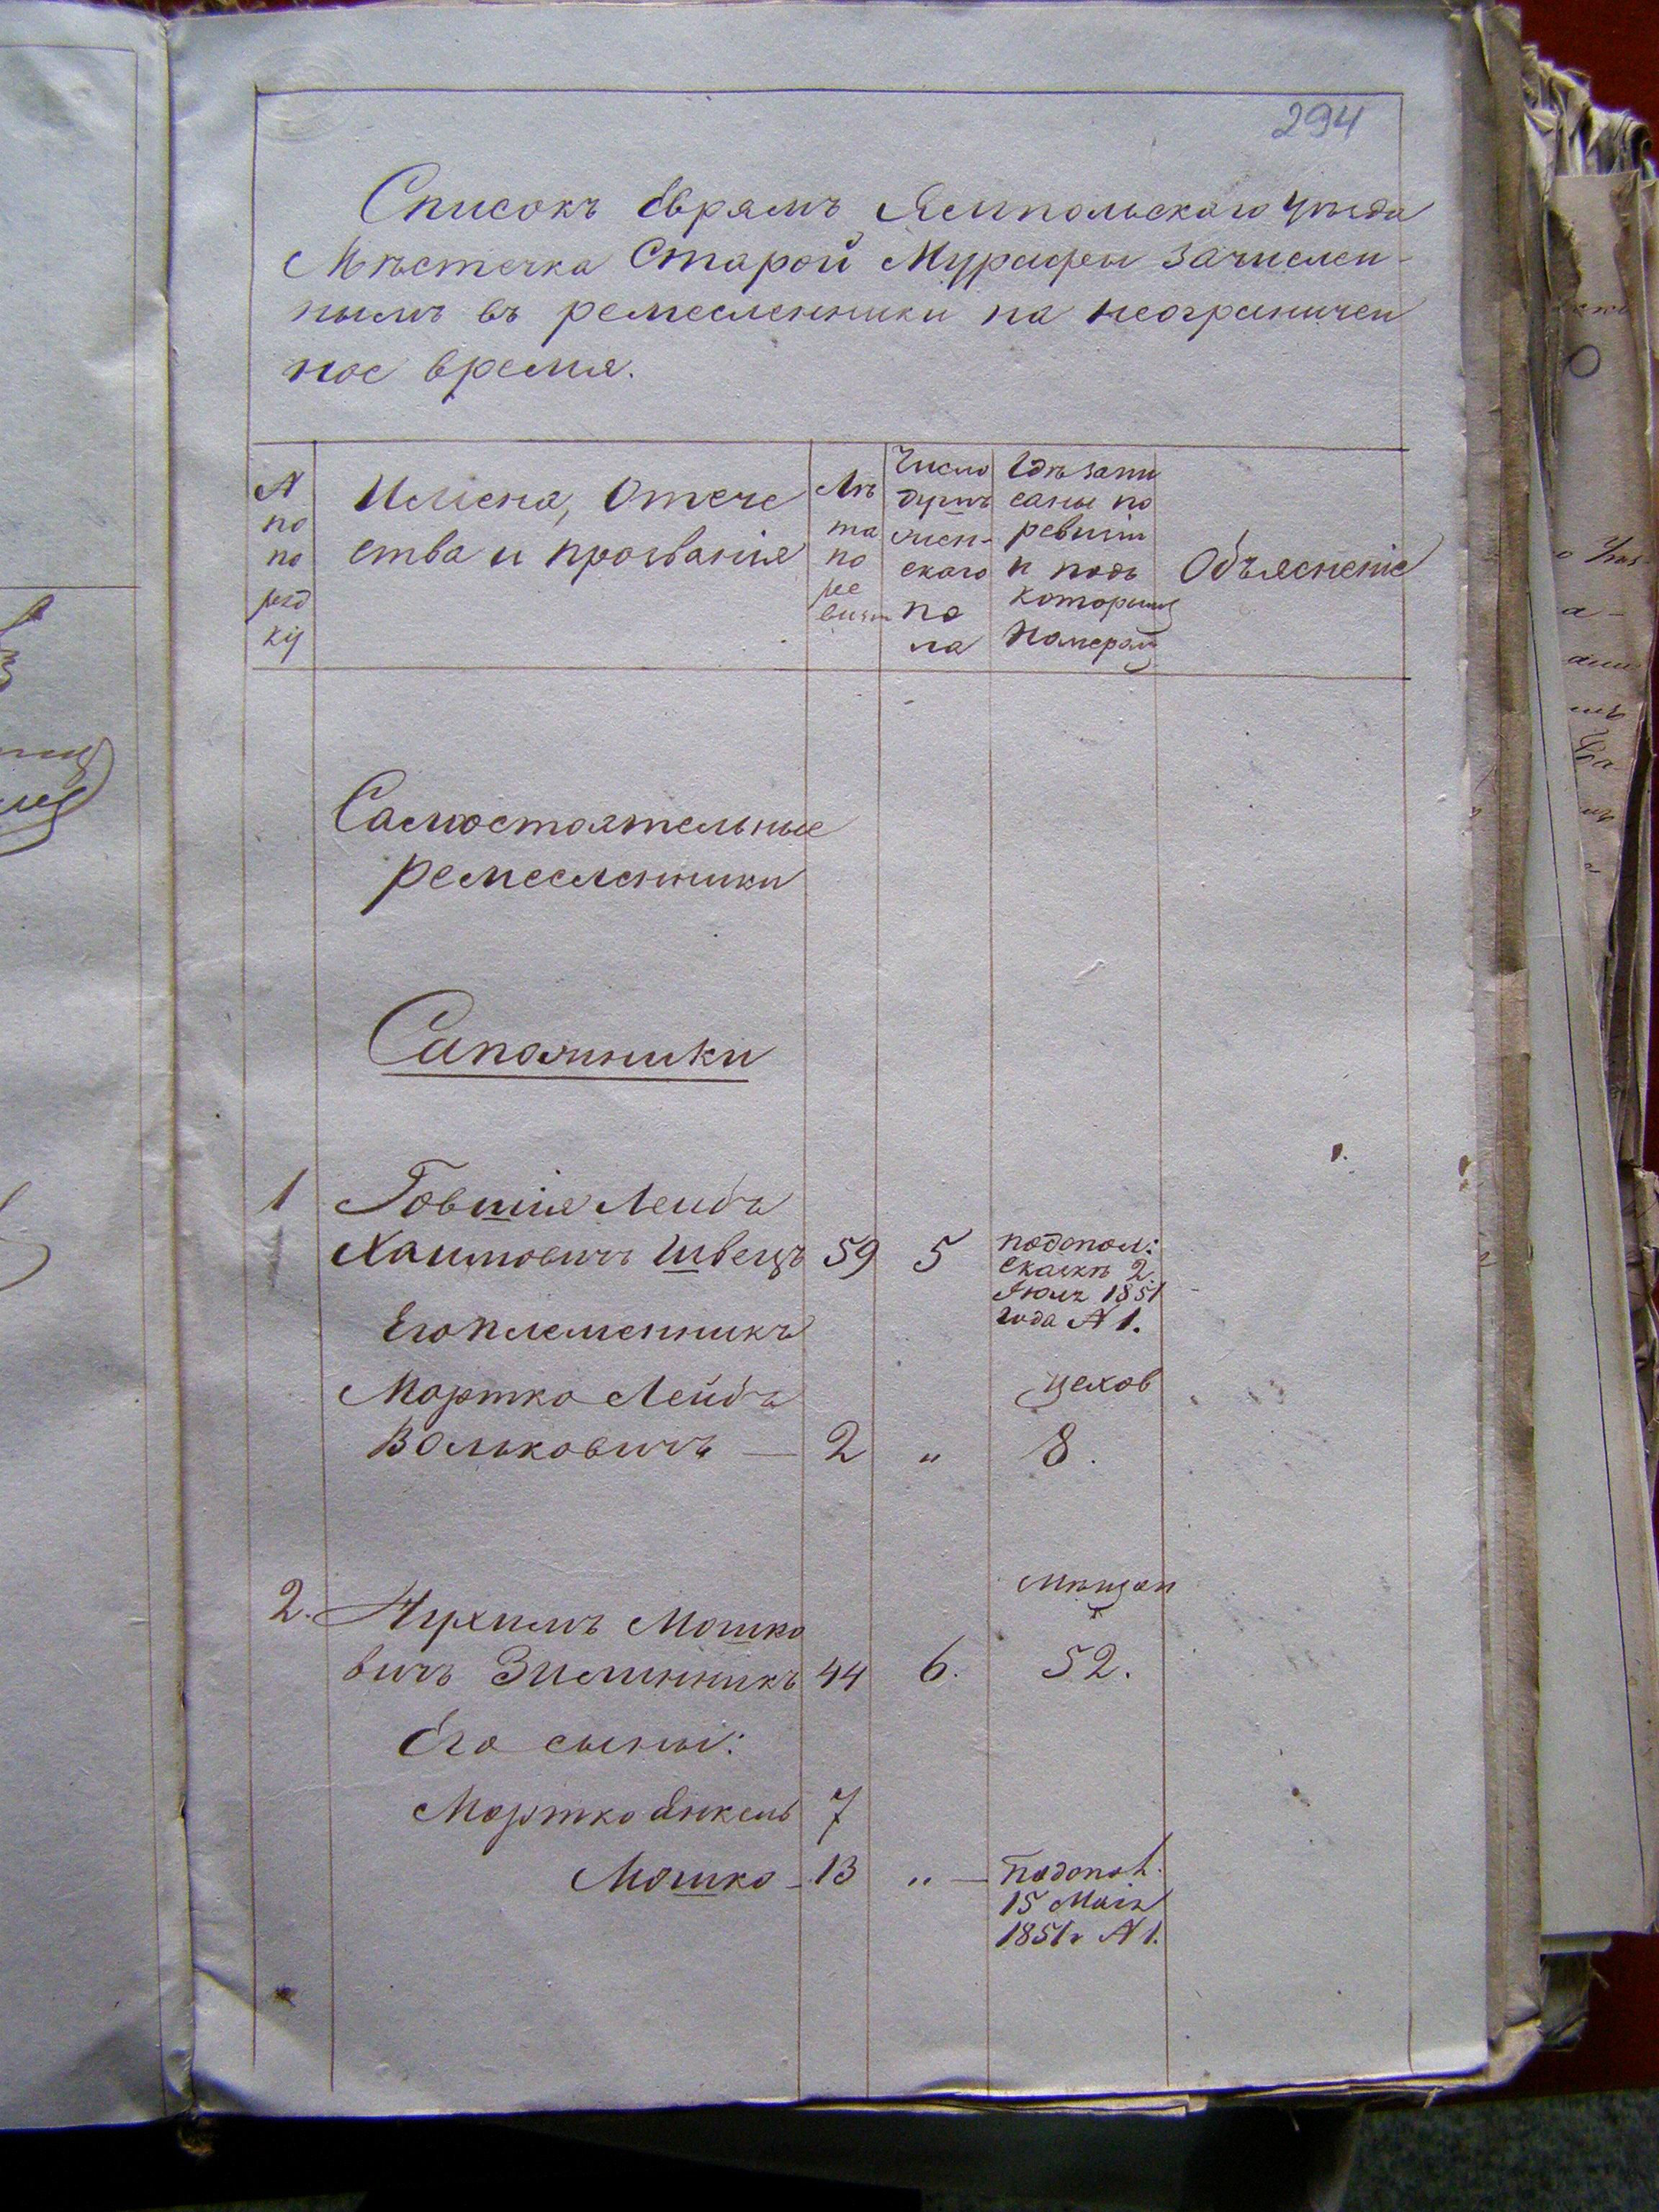 294
Списокъ Евреямъ Ямпольскаго уѣзда
Мѣстечка Старой Мурафы зачислен-
нымъ въ ремесленники на неограничен
ное время.
№ по по ряд ку
Имена, Отече ства и прозванія
Лѣ та по ре визіи
Число душъ муж- скаго по ла
Гдѣ запи саны по ревизіи и подъ которымъ номеромъ
Объясненіе
Самостоятельные
ремесленники
Сапожники
1 Говшія Лейба
Хаимовичъ Швецъ 59 5 подопол:
сказкѣ 2
Іюля 1851
года № 1.
Его племенникъ
Мортко Лейба цехов
Вольковичъ — 2 „ 8.
мѣщан
2. Нухимъ Мошко
вичъ Зилинникъ 44 6. 52.
Его сыны:
Мортко Янкель 7
Мошко - 13 „ — подопол.
15 Маія
1851г № 1.